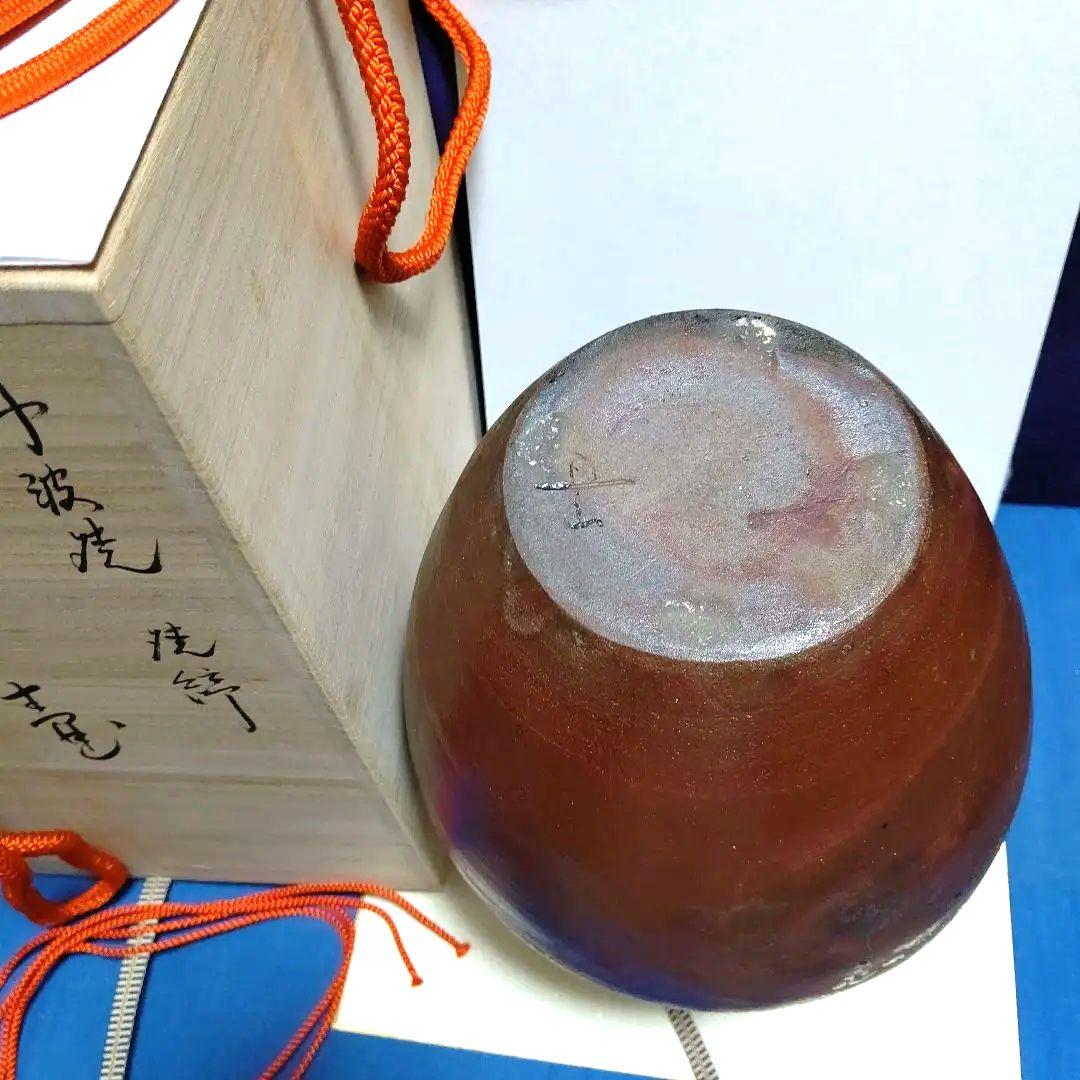 丹波焼
焼締
壷